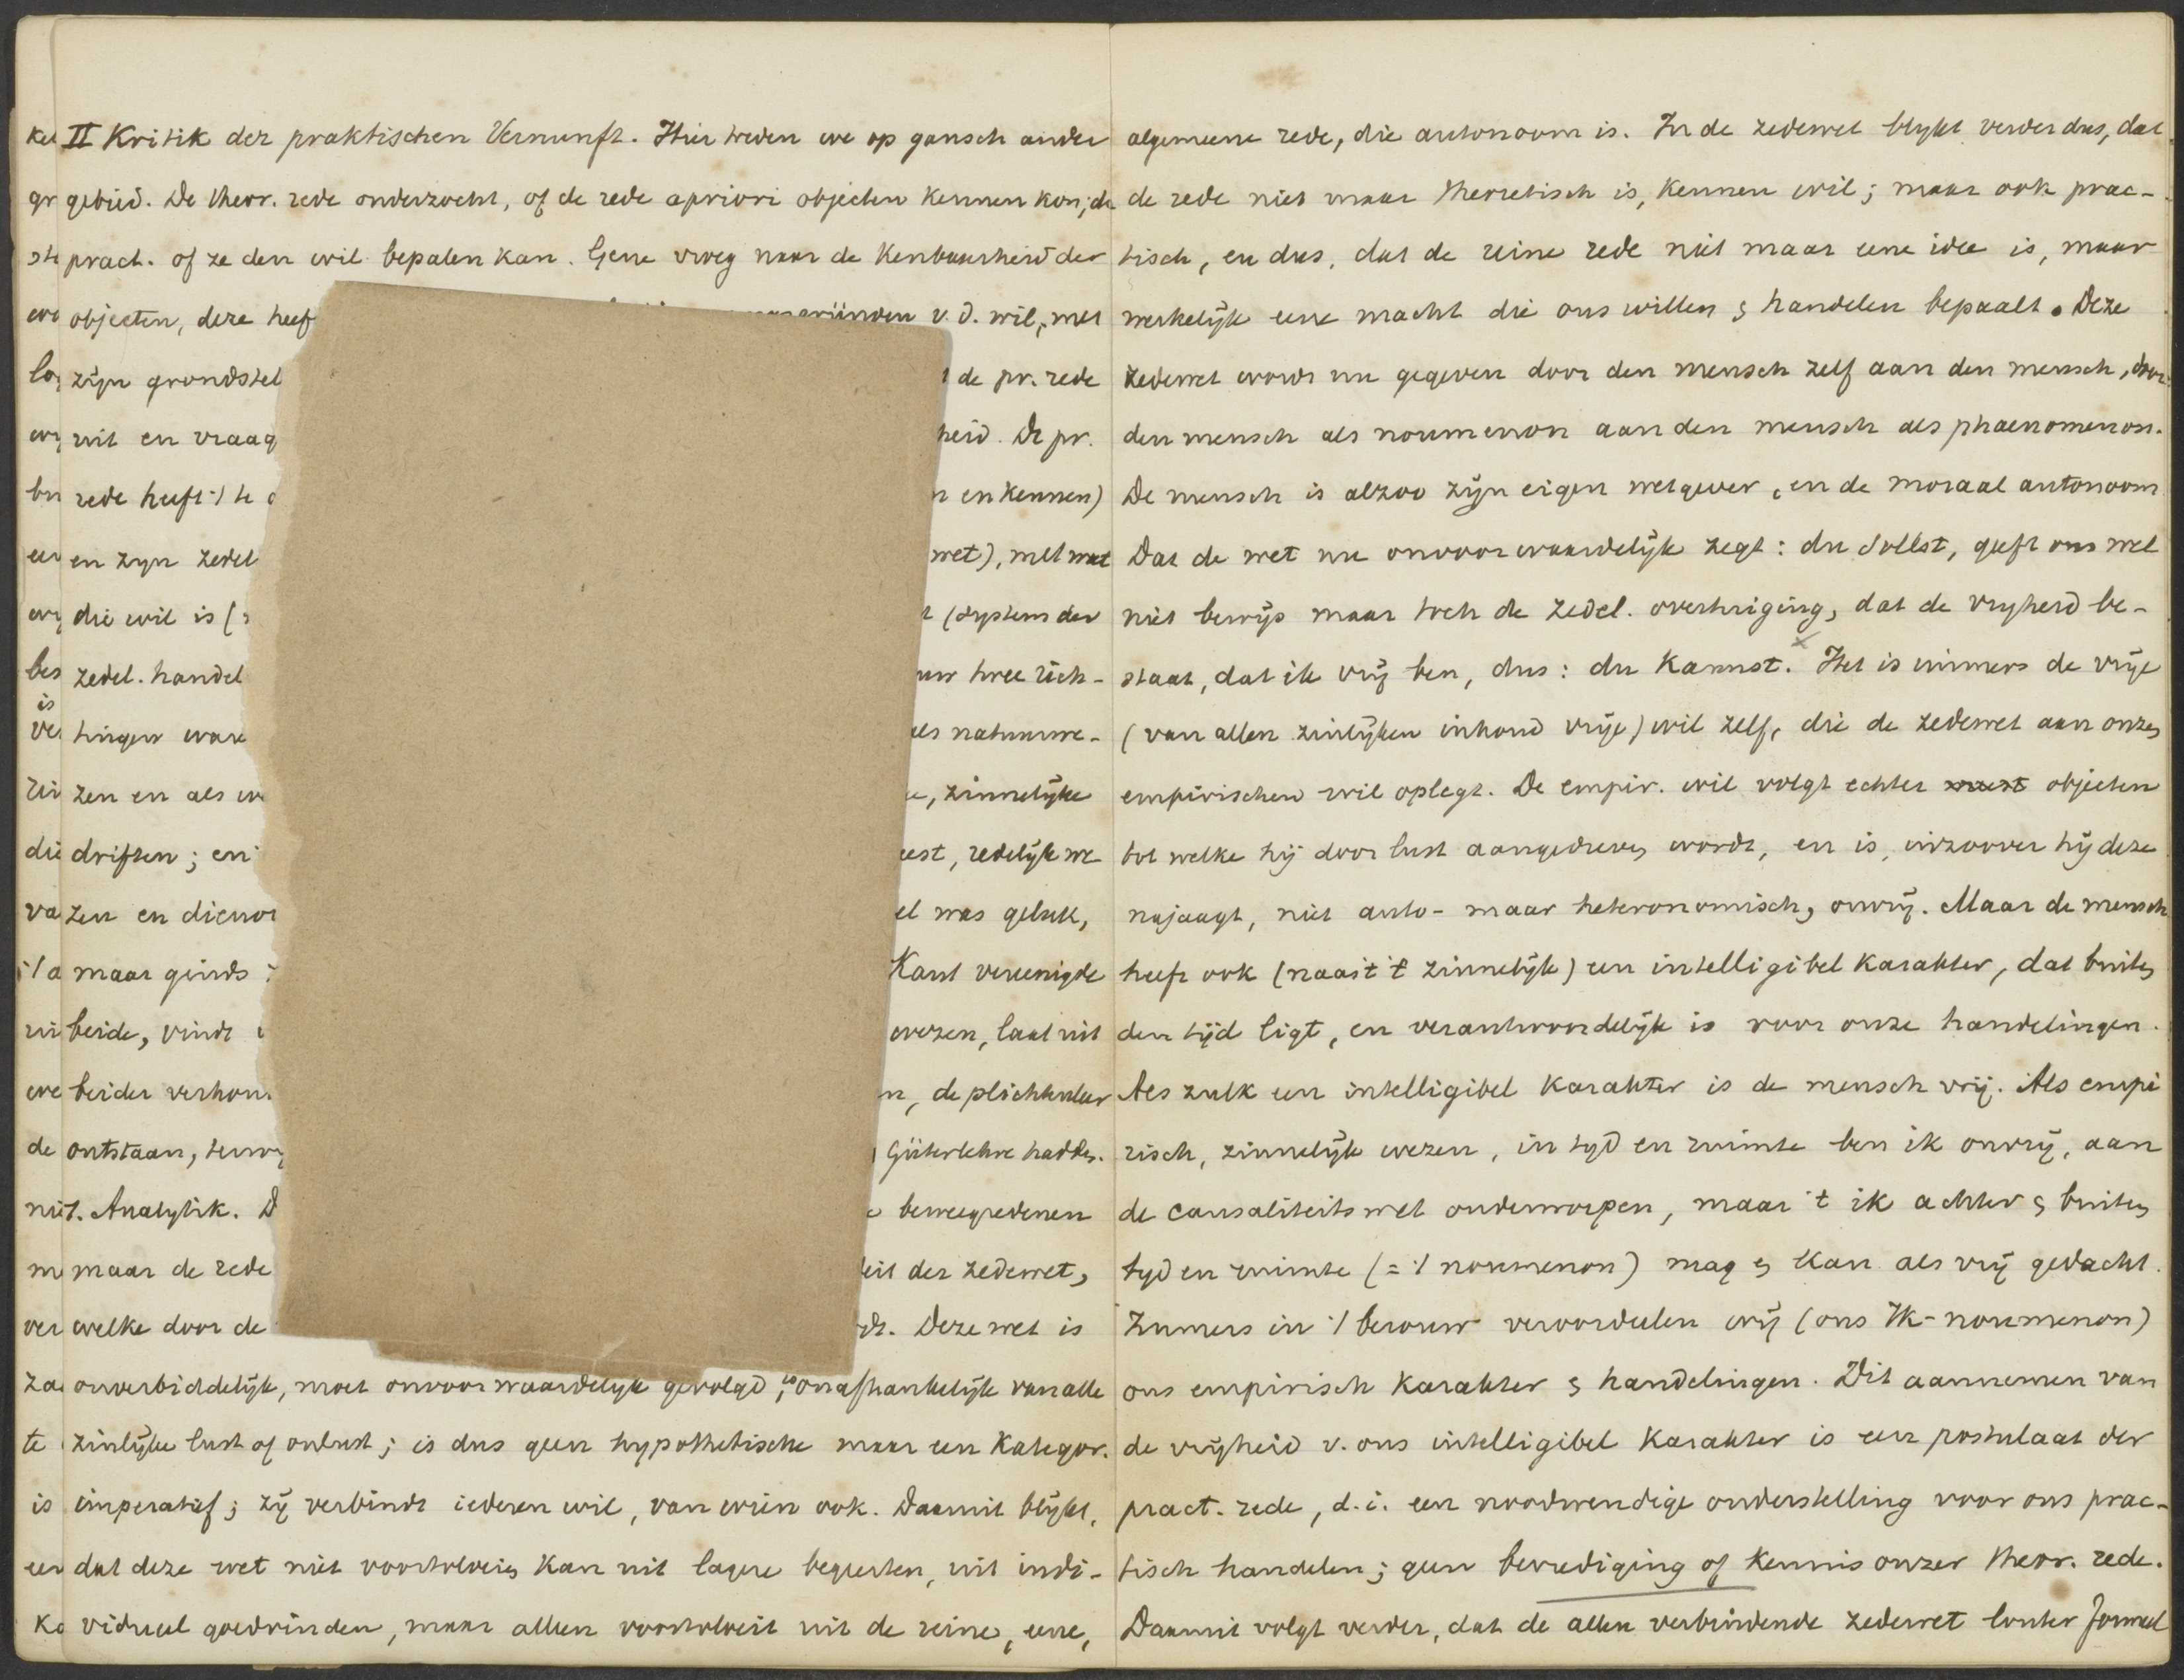 II Kritik der praktischen Vernunft. Hier treden we op gansch ander
gebied. De theor. rede onderzocht, of de rede apriori objecten kennen kon; de
pract. of ze den wil bepalen kan. Gene vroeg naar de kenbaarheid der
objecten, deze heef v. d. wil, met
zijn grondstel de pr. rede
uit en vraag heid. De pr.
rede heeft en kennen)
en zyn zedel wet), met wat
die wil is ( (System der
zedel. handel twee rich-
tingen natuurwe-
zen en als zinnelijke
driften; en redelijk we
zen en was geluk,
maar ginds Kant vereenigde
beide, vindt wezen, laat uit
beider verhou de plichtenleer
ontstaan, terwy Güterlehre hadden.
1. Analytik. D beweegredenen
maar de rede der zedewet,
welke door de Deze wet is
onverbiddelijk, moet onvoorwaardelyk gevolgd, onafhankelijk van alle
zinlijke lust of onlust; is dus geen hypothetische maar een kategor.
imperatief; zij verbindt iederen wil, van wien ook. Daaruit blijkt,
dat deze wet niet voortvloeien kan uit lagere begeerten, uit indi-
vidueel goedvinden, maar alleen voortvloeit uit de reine, eene,
algemeene rede, die autonoom is. In de zedewet blykt verder dus, dat
de rede niet maar theoretisch is, kennen wil; maar ook prac-
tisch, en dus, dat de reine rede niet maar eene idee is, maar
werkelijk eene macht die ons willen & handelen bepaalt. Deze
zedewet wordt nu gegeven door den mensch zelf aan den mensch, door
den mensch als noumenon aan den mensch als phaenomenon.
De mensch is alzoo zijn eigen wetgever, en de moraal autonoom
Dat de wet nu onvoorwaardelijk zegt: du sollst, geeft ons wel
niet bewijs maar toch de zedel. overtuiging, dat de vryheid be-
staat, dat ik vrij ben, dus: du kannst. Het is immers de vrije
(van allen zinlijken inhoud vrije) wil zelf, die de zedewet aan onzen
empirischen wil oplegt. De empir. wil volgt echter objecten
tot welke hij door lust aangedreven wordt, en is, inzoover hij deze
najaagt, niet auto- maar heteronomisch, onvrij. Maar de mensch
heeft ook (naast 't zinnelijk) een intelligibel karakter, dat buiten
den tijd ligt, en verantwoordelijk is voor onze handelingen.
Als zulk een intelligibel karakter is de mensch vrij. Als empi
risch, zinnelijk wezen, in tyd en ruimte ben ik onvrij, aan
de causaliteitswet onderworpen, maar 't ik achter & buiten
tyd en ruimte (= 't noumenon) mag & kan als vrij gedacht.
Immers in 't berouw veroordeelen wij (ons Ik-noumenon)
ons empirisch karakter & handelingen. Dit aannemen van
de vrijheid v. ons intelligibel karakter is een postulaat der
pract. rede, d.i. een noodwendige onderstelling voor ons prac-
tisch handelen; geen bevrediging of kennis onzer theor. rede.
Daaruit volgt verder, dat de allen verbindende zedewet louter formeel